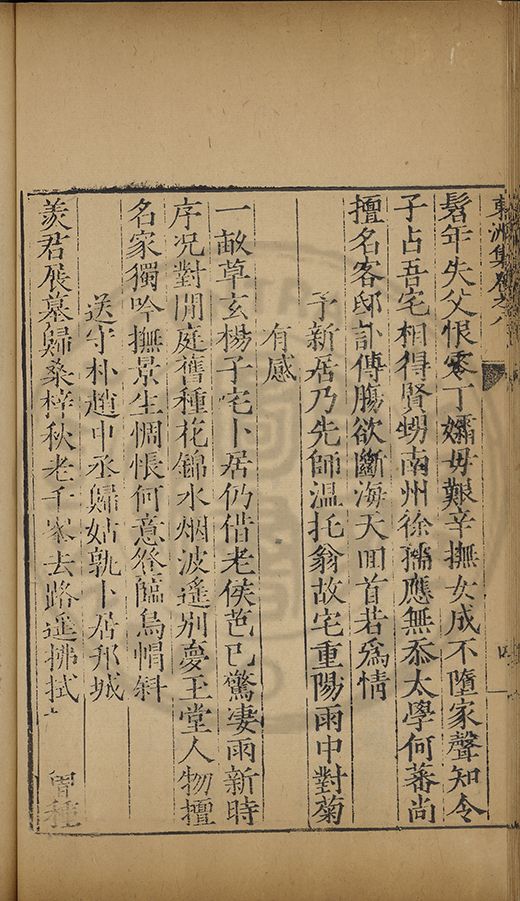 東洲集卷之八
四
髫年失父恨零丁孀母艱辛撫女成不墮家聲知令
子占吾宅相得賢甥南州徐孺應無忝太學何蕃尚
擅名客邸訃傳腸欲斷海天回首若為情
予新居乃先師温托翁故宅重陽雨中對菊
有感
一畝草玄楊子宅卜居仍借老侯芭已驚淒雨新時
序况對閒庭舊種花錦水烟波遥别夢玉堂人物擅
名家獨吟撫景生惆悵何意登臨烏帽斜
送守朴趙中丞歸姑孰卜居邦城
羨君展墓歸桑梓秋老千家去路遥拂拭 曾種